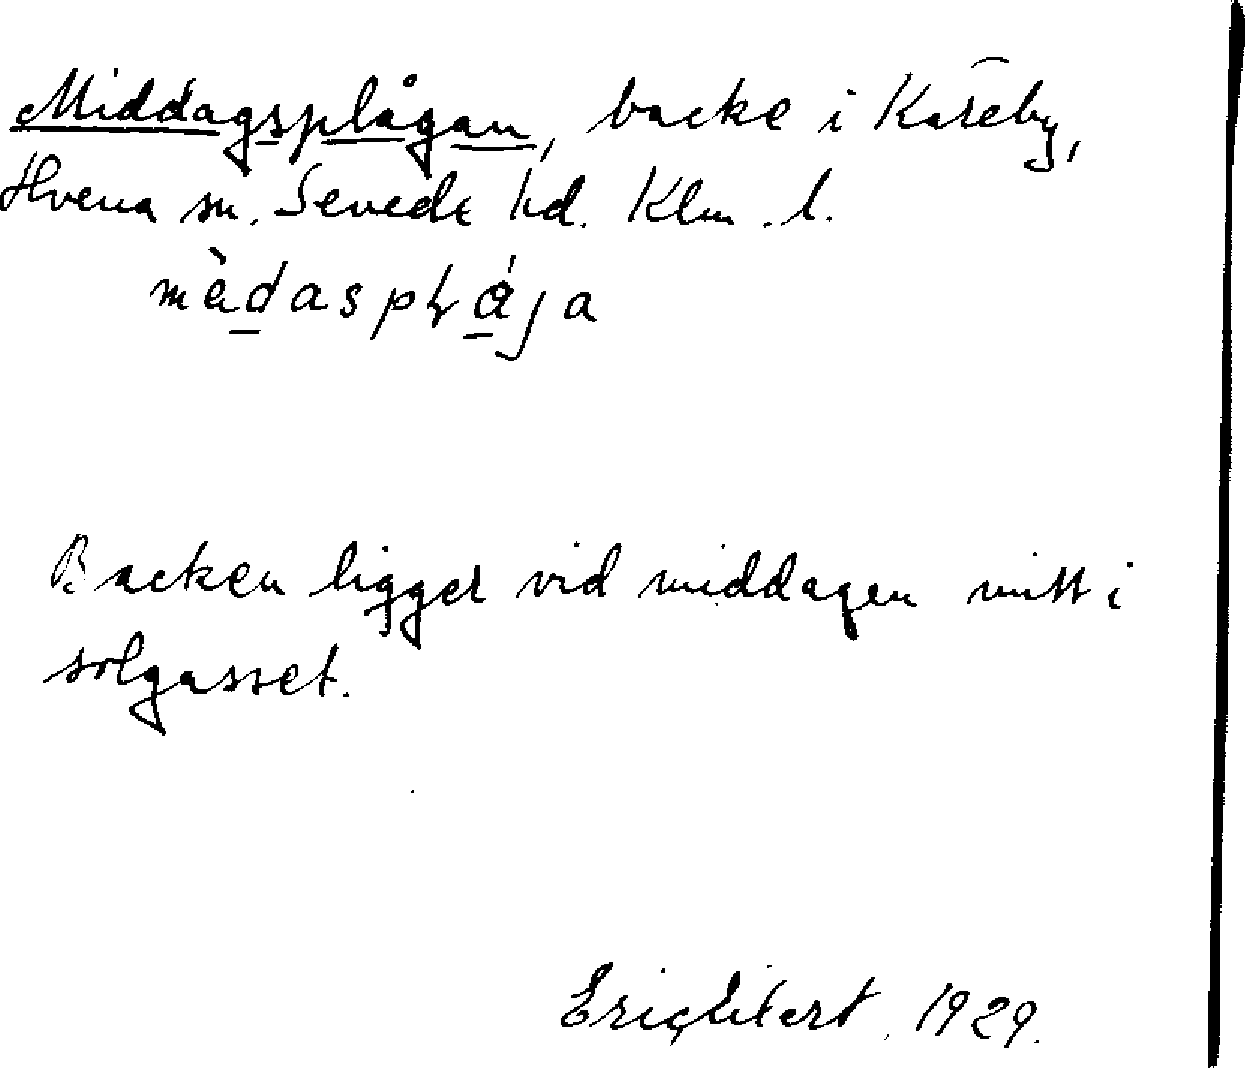 Middagsplågan, backe i Kareby,
Hvena sn. Sevede hd. Klm. l.
mèdasplája
Backen ligger vid middagen mitt i
solgasset.
1929.